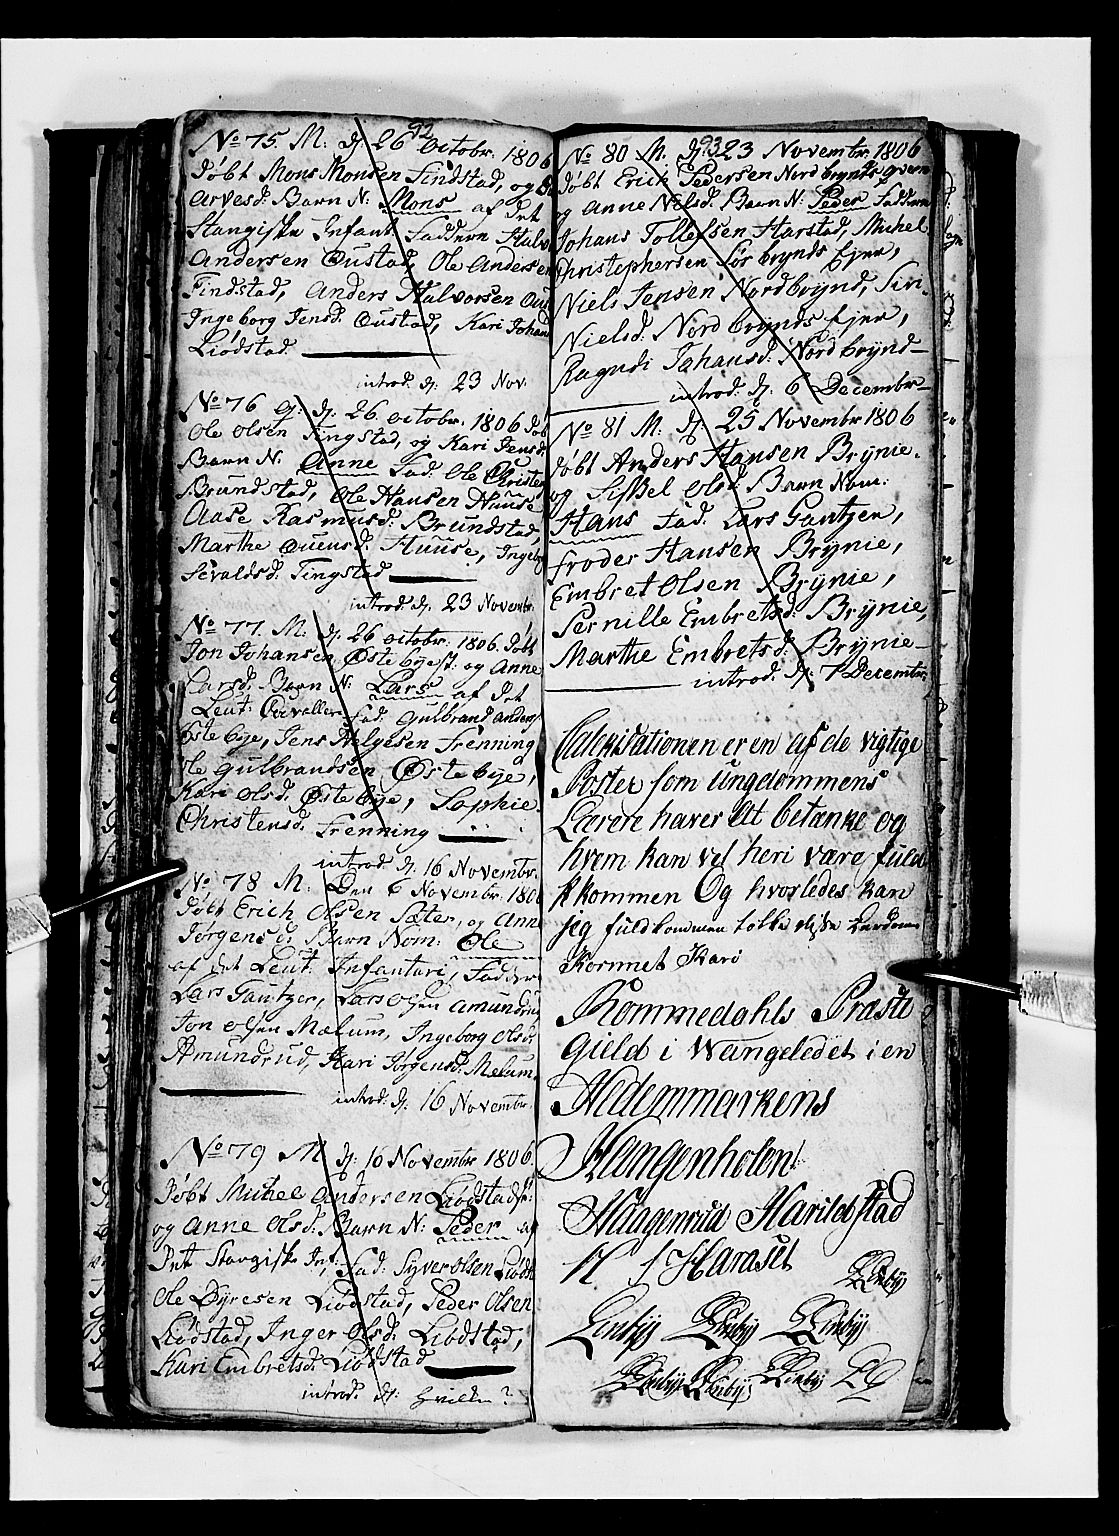 92
No 75. M: dj 26 Octobr. 1806
døbt Mons Monsen Findstad, og
Arvesd: Barn N: Mons af det
Stangiske Infant. Faddern Halv
Andersen Oustad, Ole Andersen
Findstad, Anders Halvorsen Ous
Ingeborg Jensd: Oustad, Kari Johans
Liødstad.
introd: dj: 23 Nov:
No 76 dj: 26 octobr. 1806 døb
Ole Olsen Tingstad, og Kari Jensd:
Barn N: Anne Fad: Ole Christe
Brundstad, Ole Hansen Huuse
Aase Rasmusd: Brundstad,
Marthe Ouensd: Huuse, Ingeb
Sevaldsd: Tingstad
introd: dj: 23 Novembr.
No 77. M: dj: 26 octobr. 1806. døbt
Jon Johansen Østebyest: og Anne
Larsd: Barn N: Lars af det
Leut: Fad: Gulbrand Anders
Østebye, Jens Helgesen Frenning
Ole Gulbrandsen Østebye,
Kari Olsd: Østebye, Sophie
Christensd: Frenning
introd dj 16 Novembr.
No. 78 M: Den 6 Novembr. 180
døbt Erich Olsen Sæter, og Ann
Jørgensd: Barn Nom: Ole
af det Leut: Infanteri, Fadder
Lars Gautzer, Lars Olsen Amundru
Jon Olsen Mælum, Ingeborg Olsd:
Amundrud, Kari Jørgensd: Melum.
introd: dj: 16 Novembr.
No 79 M dj: 10 Novembr 1806.
døbt Michel Andersen Liødstads
og Anne Olsd: Barn N: Peder af
det Stangiske Inf: Fad: Syver Olsen Liødst
Ole Øyresen Liødstad, Peder Olsen
Liødstad, Inger Olsd: Liødstad,
Kari Embretsd: Liødstad
introd. dj: hvillen?
93
No 80 M. dj. 23 Novembr. 1806
døbt Erich Pedersen Nordbrynds qvern
og Anne Nilsd: Barn N: Peder Faddern
Johans Tollefsen Harstad, Michel
Christophersen Sørbrynds Ejer,
Niels Jensen Nordbrynd, Siri
Nielsd: Nordbrynds Ejer,
Ragndi Johansd: Nordbrynd
introd: dj: 6 Decembr
No 81 M. dj: 25 Novembr 1806
døbt Anders Hansen Brynie.
og Sissel Olsd: Barn Nom:
Hans Fad: Lars Gautzer,
Froder Hansen Brynie,
Embret Olsen Brynie,
Pernille Embretsd: Brynie,
Marthe Embretsd: Brynie
introd: dj: 7 Decembr.
Catekisationen er en af de vigtige
Poster som ungdommens
Lærere haver at betænke og
hvem kan vel heri være fuld
kommen Og hvorledes kan
jeg fuldkommen tolke disse Lærdome
Kornmet Karo
Rommedahls Præste
Gield i Wangeledet i en
Hedemmarkens
Mangenholen
Haagenrud Harildstad
H f Haraset
Linbÿ
Linbÿ Linbÿ Linbÿ
Linbÿ Linbÿ Linbÿ